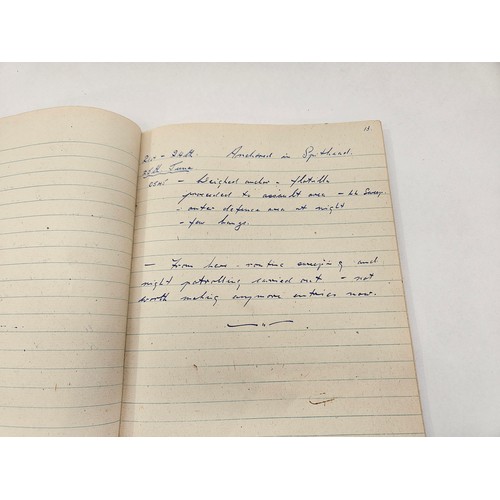 18
20 - 24th. Anchored in Spithead.
25th June
- Weighed anchor - flotilla
proceeded to assault area - LL Sweep.
- outer defence area at night
- few bangs.
- From here - routine sweeping and
night patrolling carried out - not
worth making anymore entries now.